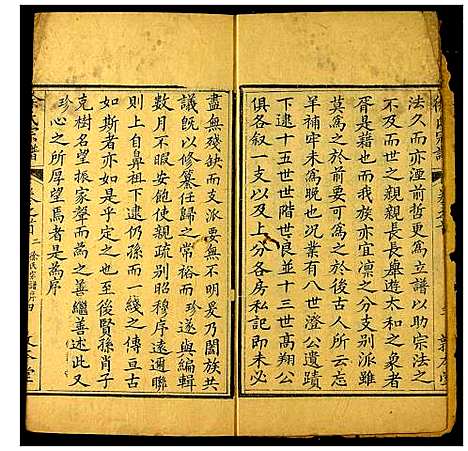 法久而亦湮前哲更為立譜以助宗法之
不及而世之親親長長畢遊大和之象者
胥是藉也而我族亦宜凛之分支別派雖
莫為之於前要可為之於後古人所云忘
羊補牢未為晚也況業有八世澄公遺蹟
下逮十五世世階世良翁十三世高翔公
俱各叙一支以及上分各房私記即未必
盡無殘缺而支派要無不明爰乃闔族共
議既以修纂任歸之常裕而珍遂與編輯
數月不暇安飽使親疏別昭穆序遠通聯
則上自鼻祖下逮仍孫而一綫之傳亘古
如斯者亦如是乎定之也至後賢孫肖子
克樹名望振家聲而為之善繼善述此又
珍心之所厚望焉者是為序
徐氏宗譜
卷之首
二
徐氏宗譜序
四